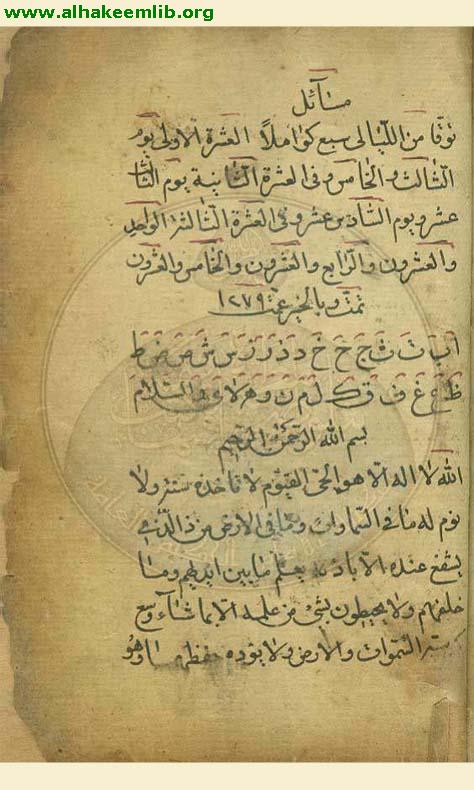 www.alhakeemlib.org
مسآئل
توقّا من اللّيالى سبع كواملاً العشرة الاولى يوم
الثّالث والخامس وفى العشرة الثّانية يوم الثّالث
عشر ويوم السّادس عشر وفى العشرة الثّالثة الواحد
والعشرون والرّابع والعشرون والخامس والعشرون
تمت وبالخير عمّت ١٢٧٩
ا ب ت ث ج ح خ د ذ ر ز س ش ص ض ط
ظ ع غ ف ق ك ل م ن و ه لا ء ى والسّلام
بسم الله الرّحمن الرّحيم
الله لا اله الّا هو الحىّ القيّوم لا تاخذه سنة ولا
نوم له ما فى السّماوات وما فى الارض من ذ الّذى
يشفع عنده الّا باذنه يعلم ما بين ايديهم وما
خلفهم ولا يحيطون بشئ من علمه الّا بما شآء وسع
السّموات والارض ولا يؤده حفظهما وهو